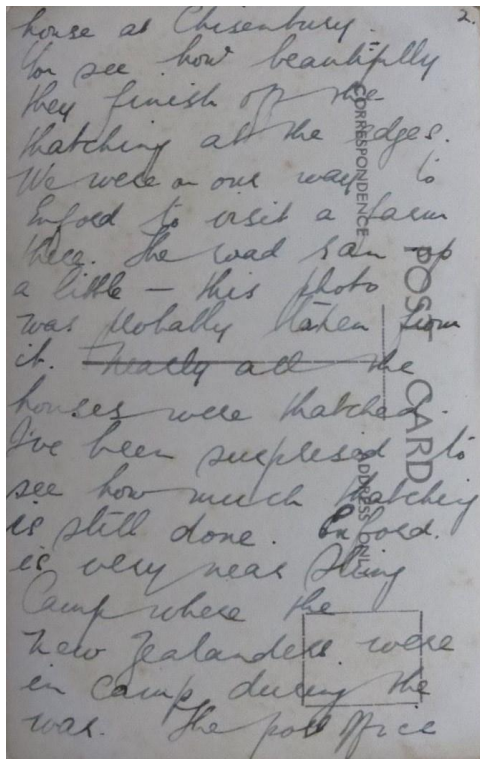 2.
house at Chisenbury.
You see how beautifully
they finish off the
thatching at the edges.
We were on our way to
Enford to visit a farm
there. The road ran up
a little — this photo
was probably taken from
it. Nearly all the
houses were thatched.
I've been surprised to
see how much thatching
is still done. Enford.
is very near Sling
Camp where the
New Zealanders were
in camp during the
war. The post office
CORRESPONDENCE
POST CARD
ADDRESS ONLY